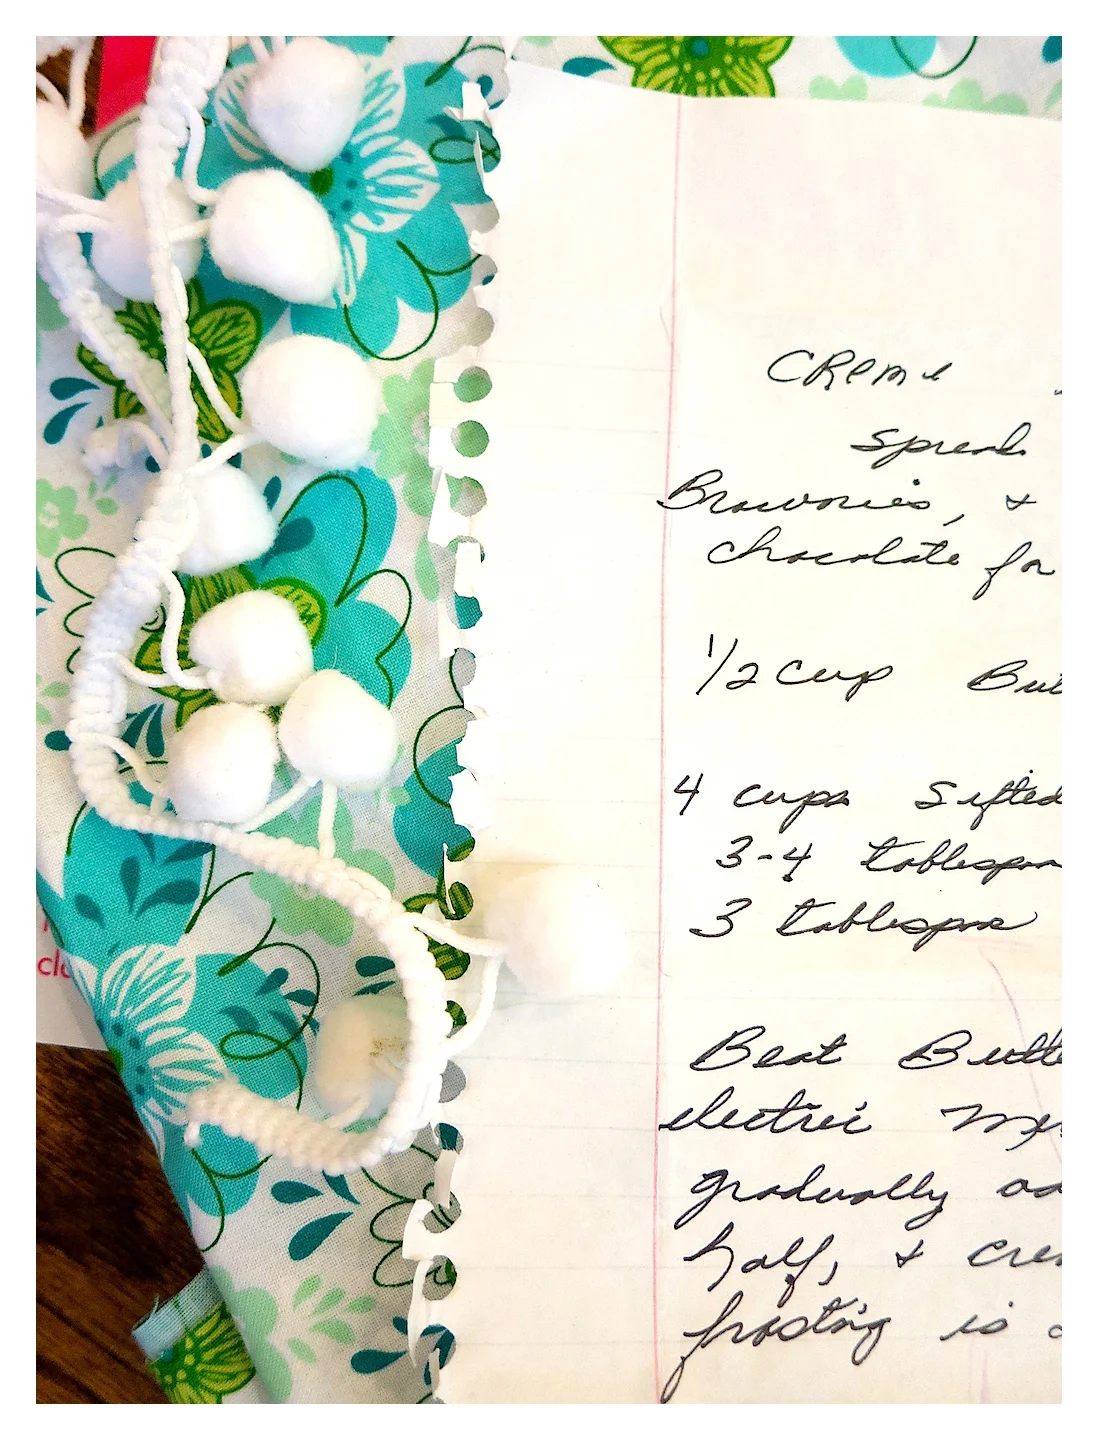 CReme
Spread
Brownies, &
chocolate for
1/2 cup But
4 cups Sifted
3-4 tablespoo
3 tablespoon
Beat Butte
electric mix
gradually ad
half, & crea
frosting is
clo